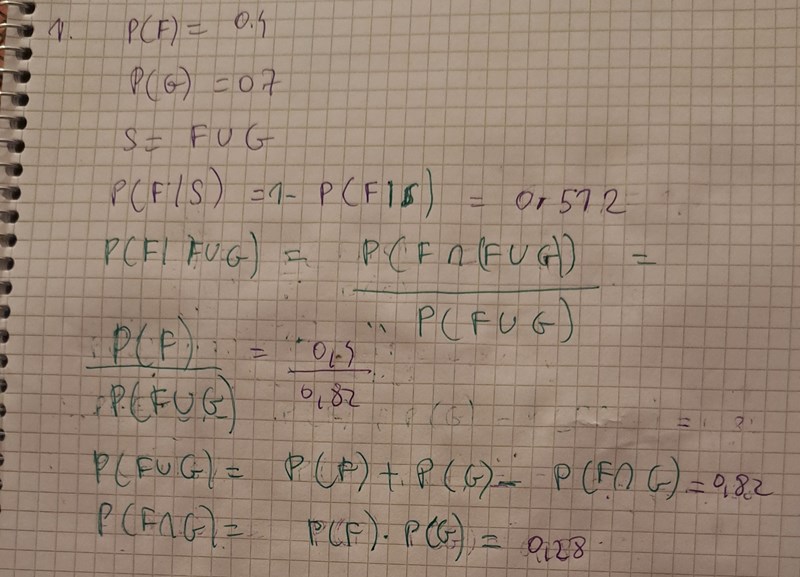 1. P(F) = 0.4
P(G) = 07
S = F ∪ G
P(F/S) = 1- P(F|S) = 0,512
P(F| F∪G) = P(F ∩ (F∪G)) / P(F∪G) =
P(F) / P(F∪G) = 0,4 / 0,82
P(F∪G) = P(F) + P(G) - P(F∩G) = 0,82
P(F∩G) = P(F) · P(G) = 0,28